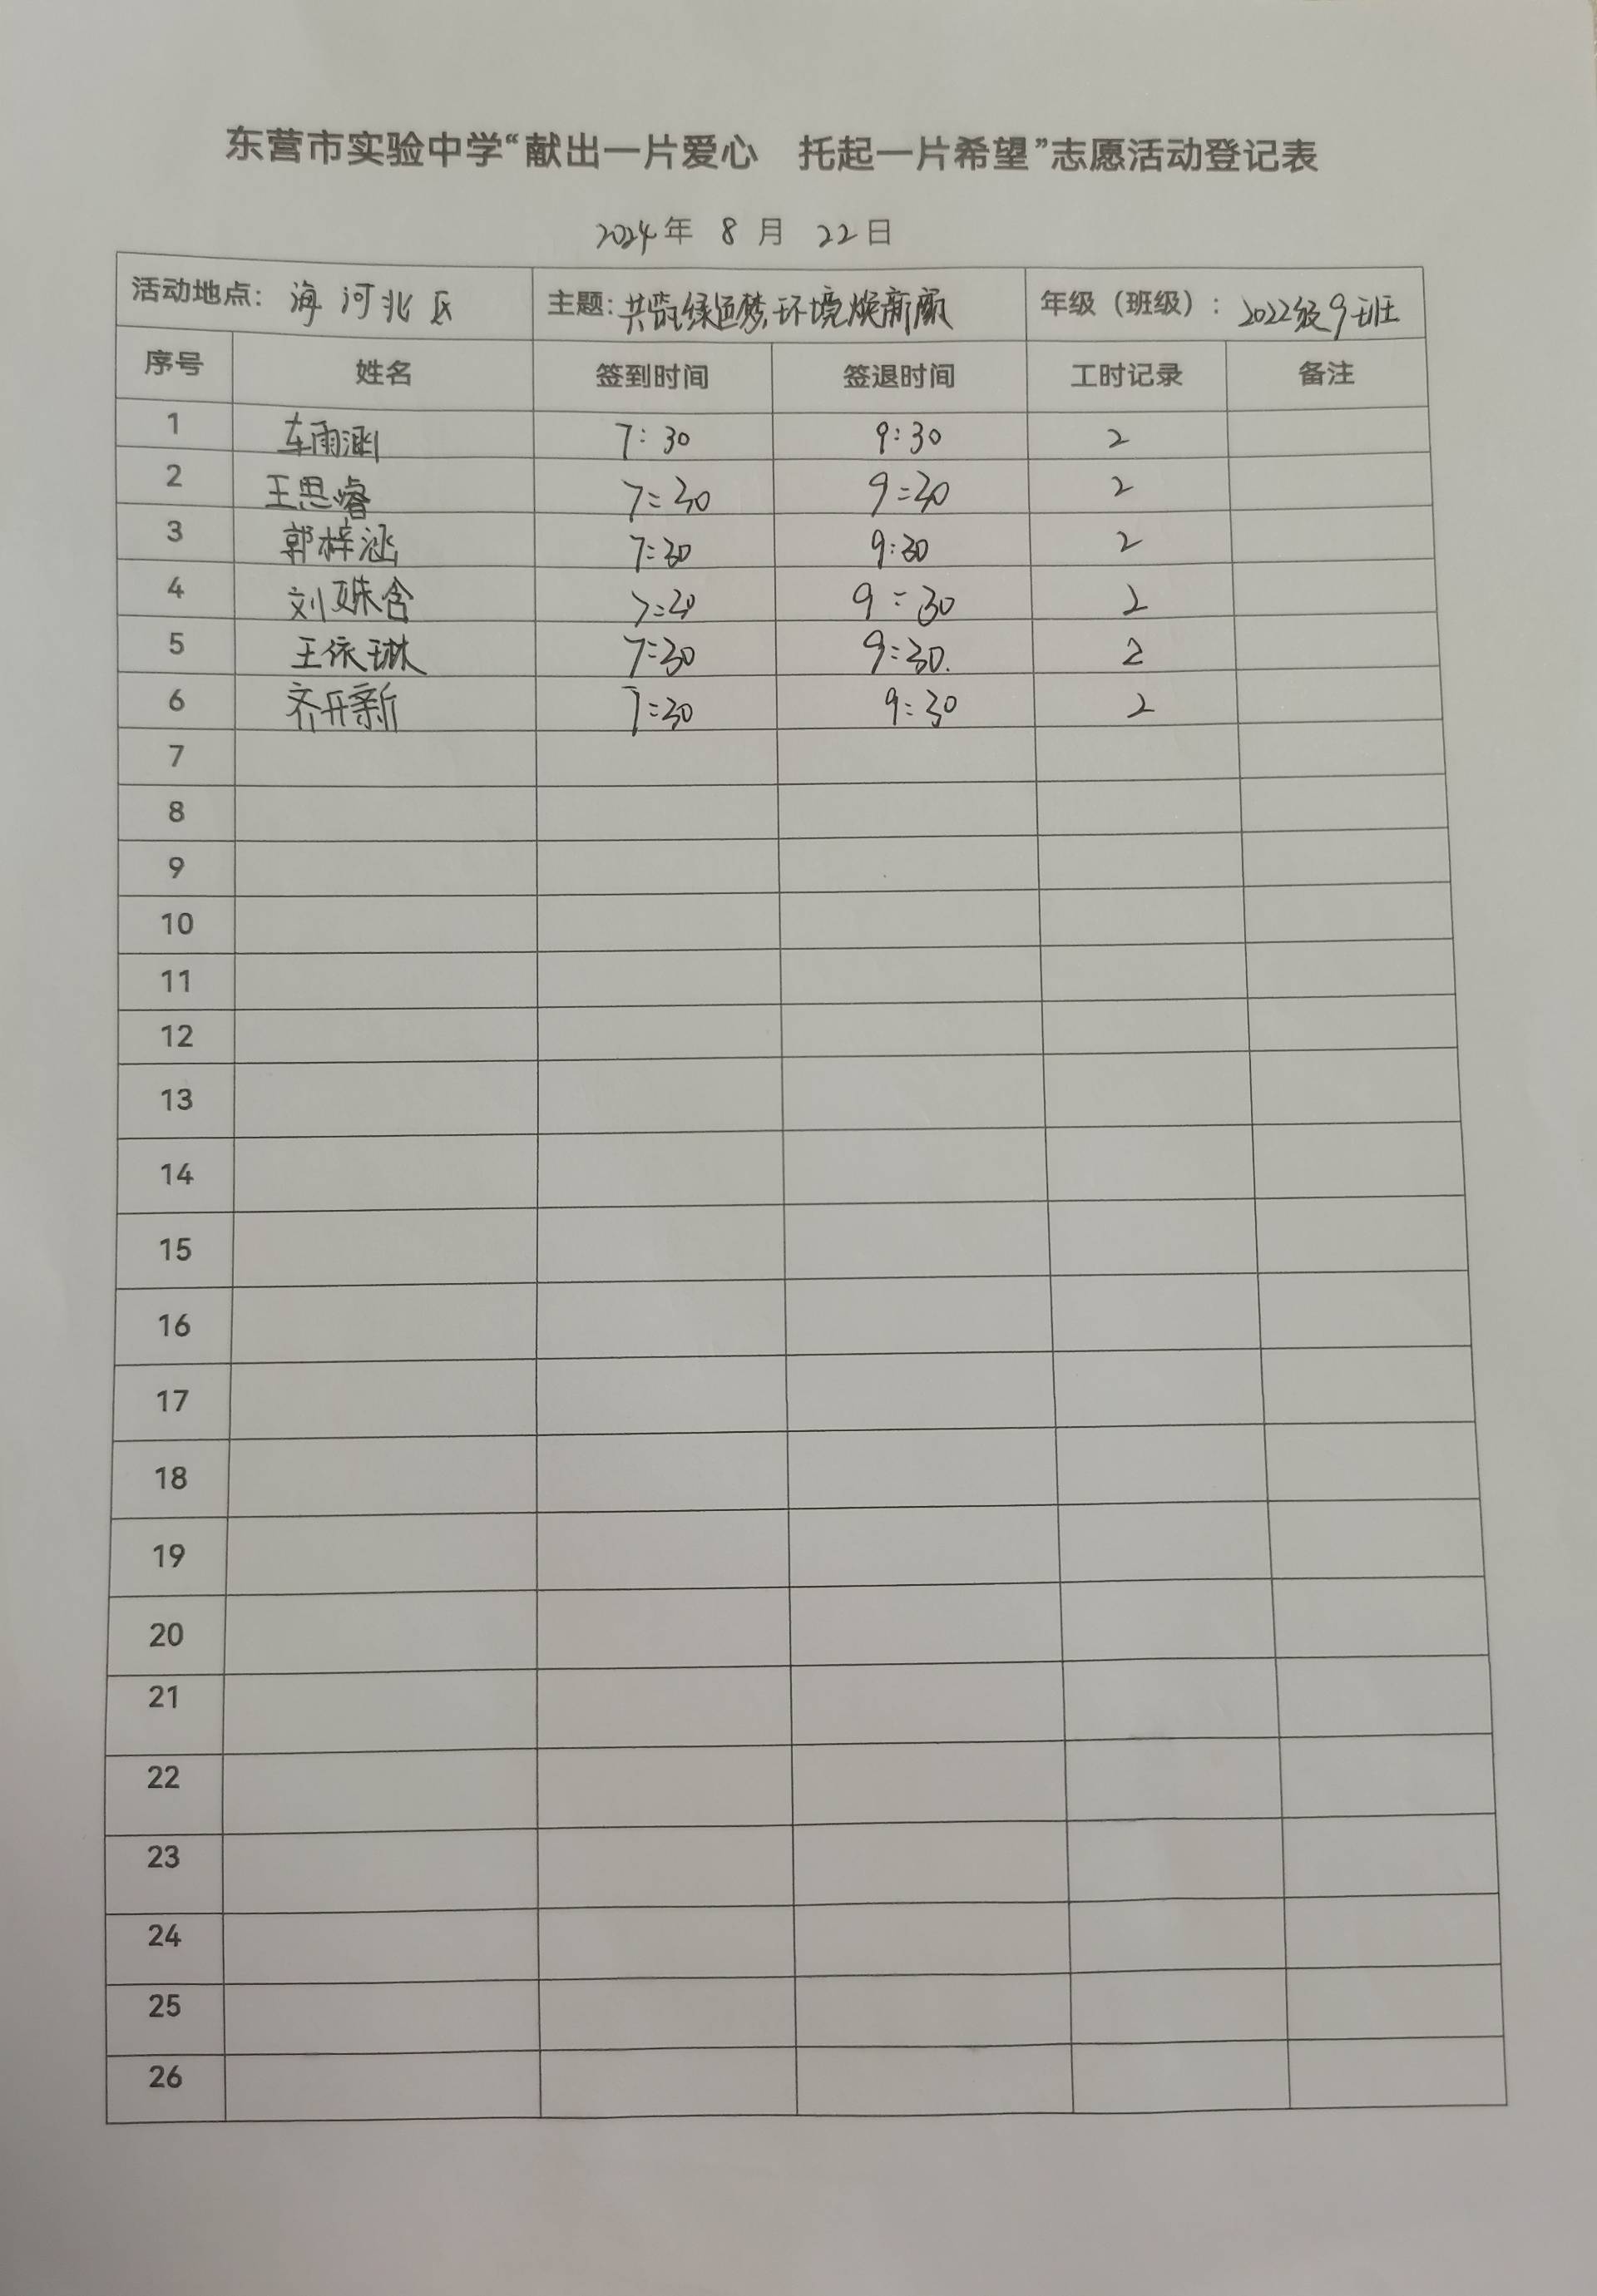 东营市实验中学“献出一片爱心 托起一片希望”志愿活动登记表
2024年 8 月 22日
活动地点: 海河北区 主题: 共筑绿色梦,环境焕新颜 年级（班级）: 2022级9班
序号 姓名 签到时间 签退时间 工时记录 备注
1 车雨涵 7:30 9:30 2
2 王思睿 7:30 9:30 2
3 郭梓涵 7:30 9:30 2
4 刘姝含 7:30 9:30 2
5 王依琳 7:30 9:30. 2
6 齐开新 7:30 9:30 2
7
8
9
10
11
12
13
14
15
16
17
18
19
20
21
22
23
24
25
26